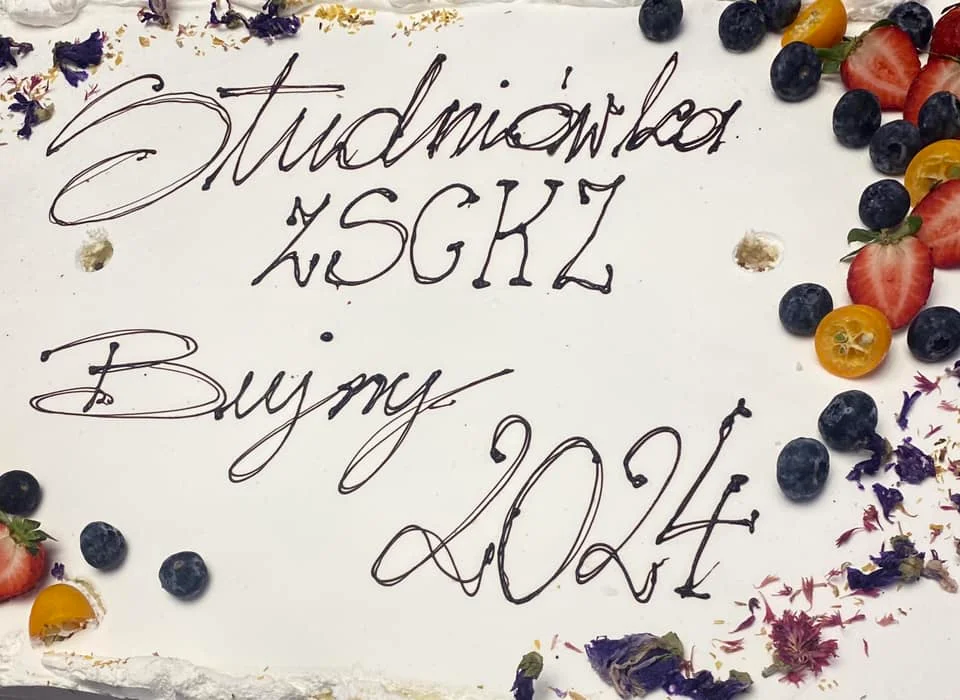 Studniówka
ZSCKZ
Bujny
2024